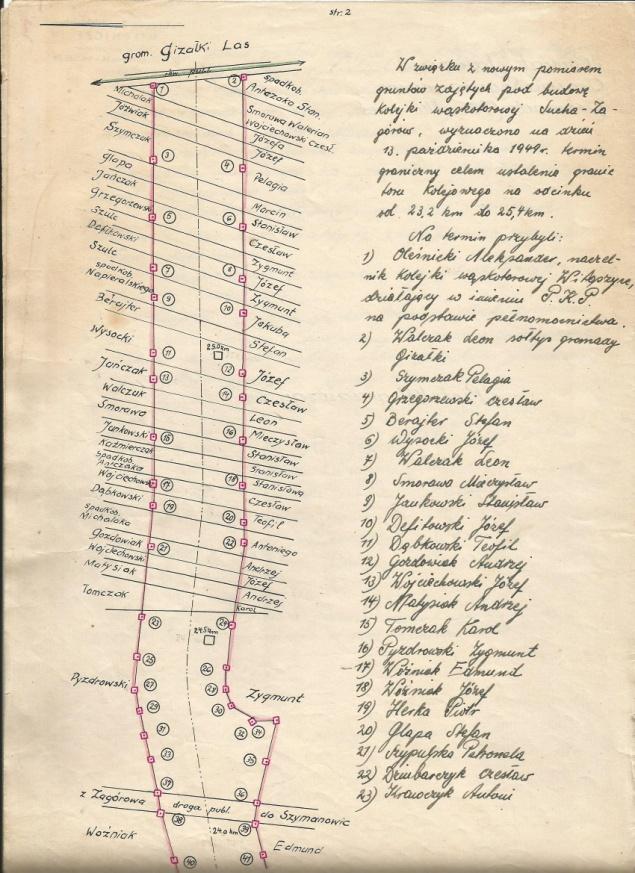 str. 2
grom. Gizałki Las
dw. publ.
1
2
spadkob.
Antczaka Stan.
Michalak
Smorawa Walerian
Jóźwiak
Wojciechowski Czesł.
Józefa
Szymczak
3
Józef
4
Glapa
Pelagia
Jańczak
Marcin
Grzegorzewski
5
6
Stanisław
Szulc
Czesław
Defitowski
Zygmunt
Szulc
7
8
Józef
spadkob.
Napieralskiego
9
Zygmunt
10
Jakuba
Berajter
Stefan
Wysocki
11
25.0km
12
Józef
Jańczak
13
14
Czesław
Walczak
Leon
Smorawa
Mieczysław
Jankowski
15
16
Stanisław
Kaźmierczak
Stanisław
Spadkob.
Antczaka
Stanisława
Wojciechowski
17
18
Czesław
Dąbkowski
19
20
Teofil
spadkob.
Michalaka
22
Antoniego
Gozdowiak
21
Andrzej
Wojciechowski
Józef
Matysiak
Andrzej
Tomczak
Karol
23
24
24.5km
25
26
Pyzdrowski
27
28
Zygmunt
29
30
31
32
34
33
35
37
36
z Zagórowa
droga publ.
do Szymanowic
38
39
Woźniak
24.0km
Edmund
40
41
W związku z nowym pomiarem
gruntów zajętych pod budowę
kolejki wąskotorowej Sucha-Za-
górów, wyznaczono na dzień
13. października 1949r. termin
graniczny celem ustalenia granic
toru kolejowego na odcinku
od 23,2 km do 25,4km.
Na termin przybyli:
1) Oleśnicki Aleksander, naczel-
nik kolejki wąskotorowej Witaszyce,
działający w imieniu P.K.P.
na podstawie pełnomocnictwa.
2) Walczak Leon sołtys gromady
Gizałki
3) Szymczak Pelagia
4) Grzegorzewski Czesław
5) Berajter Stefan
6) Wysocki Józef
7) Walczak Leon
8) Smorawa Mieczysław
9) Jankowski Stanisław
10) Defitowski Józef
11) Dąbkowski Teofil
12) Gozdowiak Andrzej
13) Wojciechowski Józef
14) Matysiak Andrzej
15) Tomczak Karol
16) Pyzdrowski Zygmunt
17) Woźniak Edmund
18) Woźniak Józef
19) Herka Piotr
20) Glapa Stefan
21) Petronela
22) Dziubarczyk Czesław
23) Krawczyk Antoni